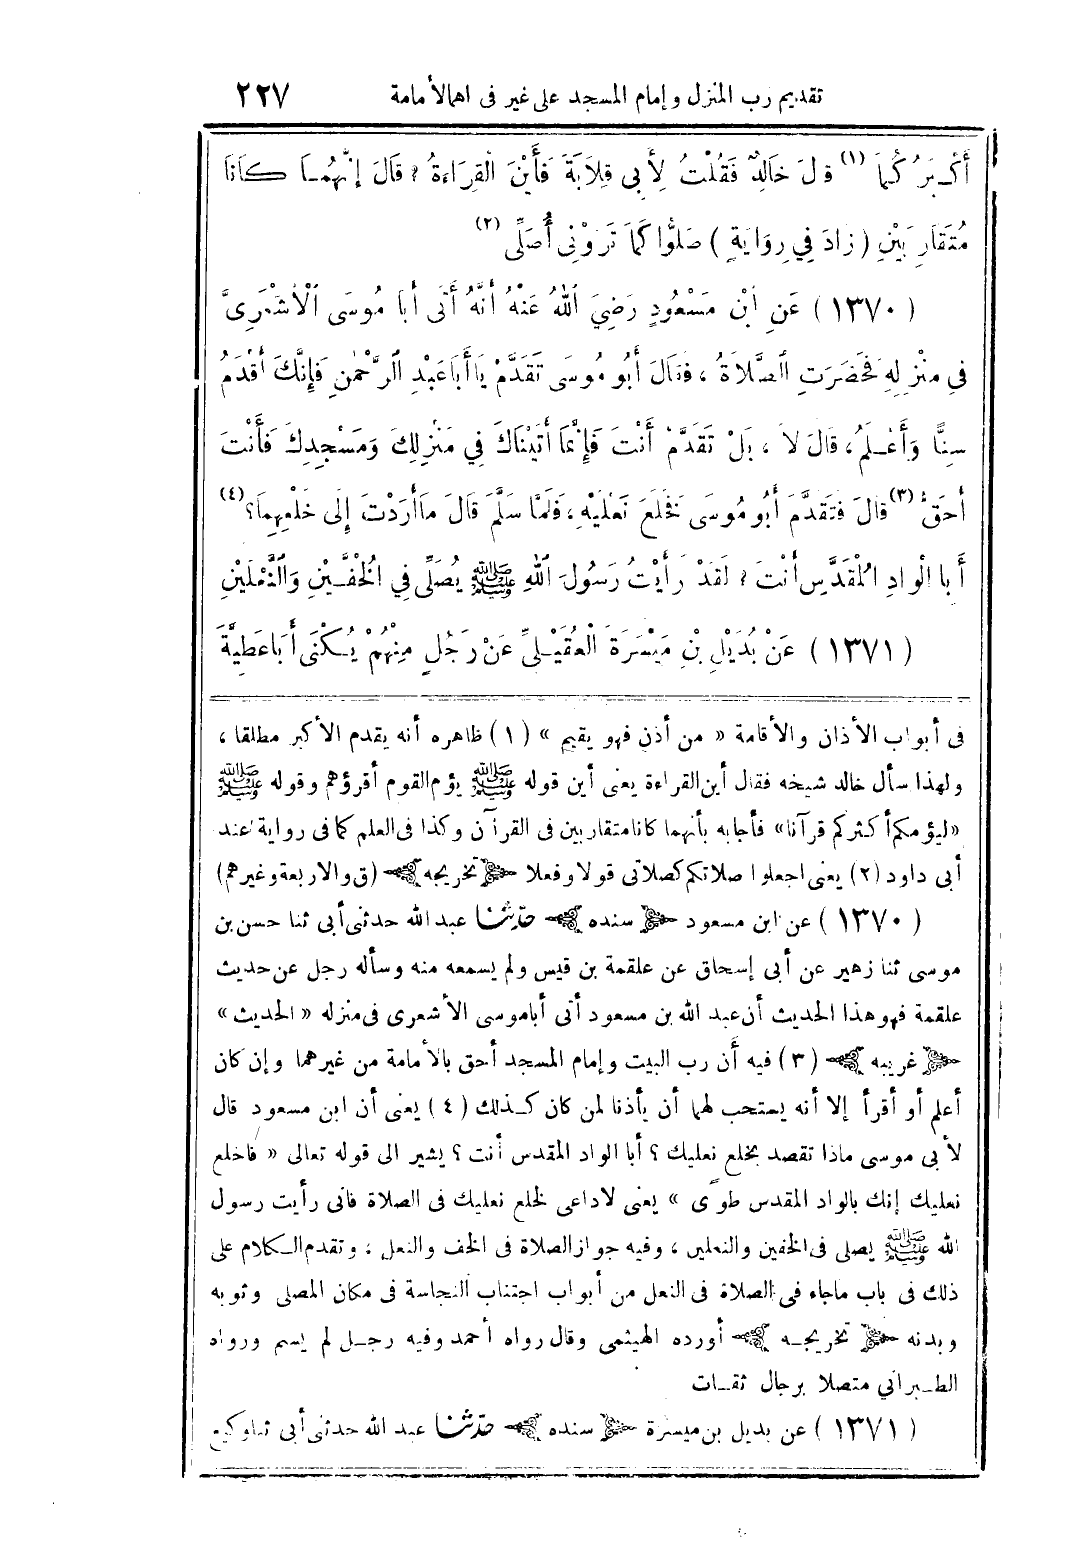 تقديم رب المنزل وإمام المسجد على غير فى اهمالأمامة ٢٢٧
أَكْبَرُكُمَا (١) قالَ خَالِدٌ فَقُلْتُ لِأَبِى قِلَابَةَ فَأَيْنَ الْقِرَاءَةُ؟ قَالَ إِنَّهُمَا كَانَا
مُتَقَارِبَيْنِ (زَادَ فِي رِوَايَةٍ) صَلُّوا كَمَا تَرَوْنِى أُصَلِّى (٢)
(١٣٧٠) عَنِ ابْنِ مَسْعُودٍ رَضِيَ اللهُ عَنْهُ أَنَّهُ أَتَى أَبَا مُوسَى الْأَشْعَرِىَّ
فِي مَنْزِلِهِ فَحَضَرَتِ الصَّلَاةُ، فَقَالَ أَبُو مُوسَى تَقَدَّمْ يَا أَبَا عَبْدِ الرَّحْمٰنِ فَإِنَّكَ أَقْدَمُ
سِنًّا وَأَعْلَمُ، قَالَ لَا، بَلْ تَقَدَّمْ أَنْتَ فَإِنَّمَا أَتَيْنَاكَ فِي مَنْزِلِكَ وَمَسْجِدِكَ فَأَنْتَ
أَحَقُّ (٣) قَالَ فَتَقَدَّمَ أَبُو مُوسَى فَخَلَعَ نَعْلَيْهِ، فَلَمَّا سَلَّمَ قَالَ مَا أَرَدْتَ إِلَى خَلْعِهِمَا؟ (٤)
أَبِا لْوَادِ الْمُقَدَّسِ أَنْتَ؟ لَقَدْ رَأَيْتُ رَسُولَ اللهِ ﷺ يُصَلِّى فِي الْخُفَّيْنِ وَالنَّعْلَيْنِ
(١٣٧١) عَنْ بُدَيْلِ بْنِ مَيْسَرَةَ الْعُقَيْلِىِّ عَنْ رَجُلٍ مِنْهُمْ يُكْنَى أَبَا عَطِيَّةَ
فى أبواب الأذان والأقامة « من أذن فهو يقيم » (١) ظاهره أنه يقدم الأكبر مطلقا،
ولهذا سأل خالد شيخه فقال أين القراءة يعنى أين قوله ﷺ يؤم القوم أقرؤهم وقوله ﷺ
«ليؤمكم أكثركم قرآنا» فأجابه بأنهما كانا متقاربين فى القرآن وكذا فى العلم كما فى رواية عند
أبى داود (٢) يعنى اجعلوا صلاتكم كصلاتى قولا وفعلا ﴿تخريجه﴾ (ق والاربعة وغيرهم)
(١٣٧٠) عن ابن مسعود ﴿سنده﴾ حدّثنا عبد الله حدثنى أبى ثنا حسن بن
موسى ثنا زهير عن أبى إسحاق عن علقمة بن قيس ولم يسمعه منه وسأله رجل عن حديث
علقمة فهو هذا الحديث أن عبد الله بن مسعود أتى أبا موسى الأشعرى فى منزله « الحديث »
﴿غريبه﴾ (٣) فيه أن رب البيت وإمام المسجد أحق بالأمامة من غيرهما وإن كان
أعلم أو أقرأ إلا أنه يستحب لهما أن يأذنا لمن كان كذلك (٤) يعنى أن ابن مسعود قال
لأبى موسى ماذا تقصد بخلع نعليك؟ أبا الواد المقدس أنت؟ يشير الى قوله تعالى « فاخلع
نعليك إنك بالواد المقدس طوًى » يعنى لا داعى لخلع نعليك فى الصلاة فانى رأيت رسول
الله ﷺ يصلى فى الخفين والنعلين، وفيه جواز الصلاة فى الخف والنعل، وتقدم الكلام على
ذلك فى باب ماجاء فى الصلاة فى النعل من أبواب اجتناب النجاسة فى مكان المصلى وثوبه
وبدنه ﴿تخريجه﴾ أورده الهيثمى وقال رواه أحمد وفيه رجل لم يسم ورواه
الطبراني متصلا برجال ثقات
(١٣٧١) عن بديل بن ميسرة ﴿سنده﴾ حدّثنا عبد الله حدثنى أبى ثنا وكيع